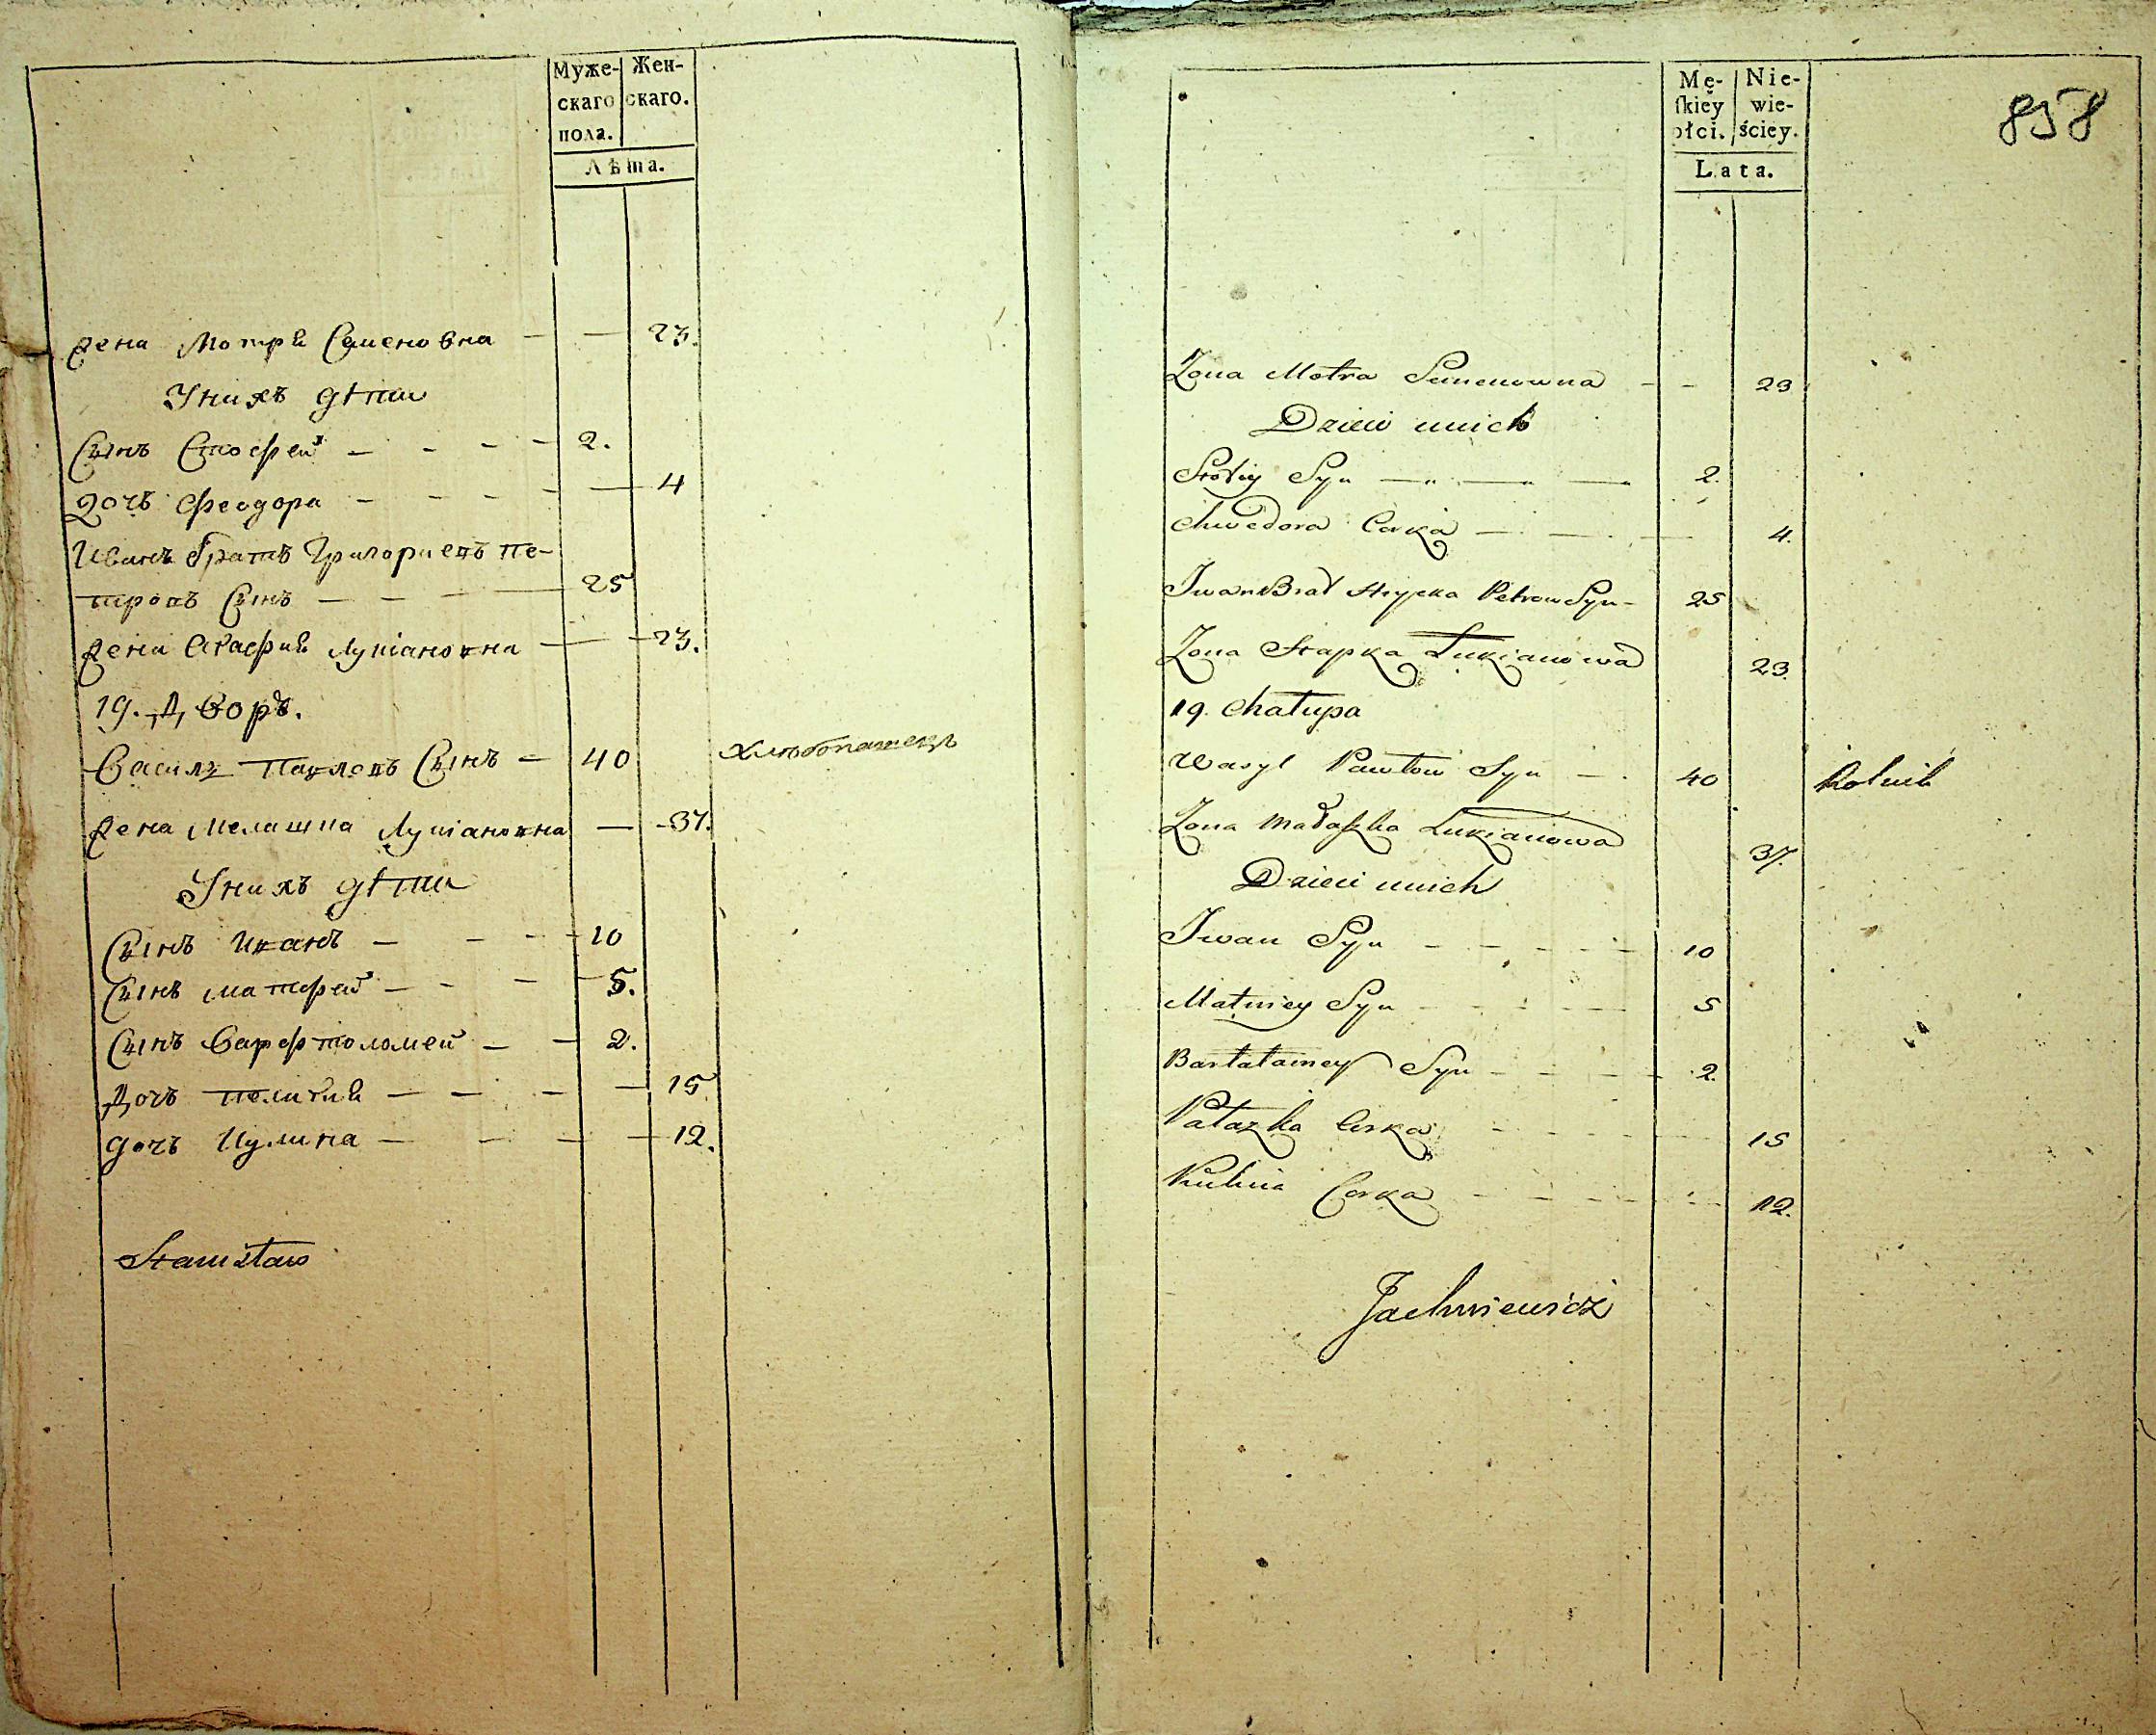 Муже-
скаго
пола.
Жен-
скаго.
Лѣта.
Жена Мотря Семеновна — — 23.
Унихъ дѣти
Сынъ Стофей — — — 2.
Дочь Феодора — — — — 4
Иванъ братъ Григориевъ Пе-
тровъ Сынъ — — — 25
Жена Агафия Лукіановна — — 23.
19. Дворъ.
Василь Павловъ Сынъ — 40 Хлѣбопашецъ
Жена Мелашка Лукіановна — 37.
Унихъ дѣти
Сынъ Иванъ — — — 10
Сынъ Матфей — — — 5.
Сынъ Варфтоломей — — 2.
Дочь Пелагия — — — — 15
Дочь Кулина — — — — 12.
Stanisław
Mę-
skiey
płci.
Nie-
wie-
ściey.
Lata.
858
Zona Motra Semenowna — — 23
Dzieci unich
Stofiy Syn — — — 2.
Chwedora Corka — — — 4.
Iwan Brat Hrycka Petrow Syn — 25
Zona Hapka Lukianowa 23.
19. Chałupa
Wasyl Pawłow Syn — 40 Rolnik
Zona Małaszka Lukianowa 37.
Dzieci unich
Iwan Syn — — — — 10
Matwiey Syn — — — — 5
Bartałamey Syn — — — 2.
Pałazka Corka — — — — 15
Kulina Corka — — — — 12.
Jachniewicz